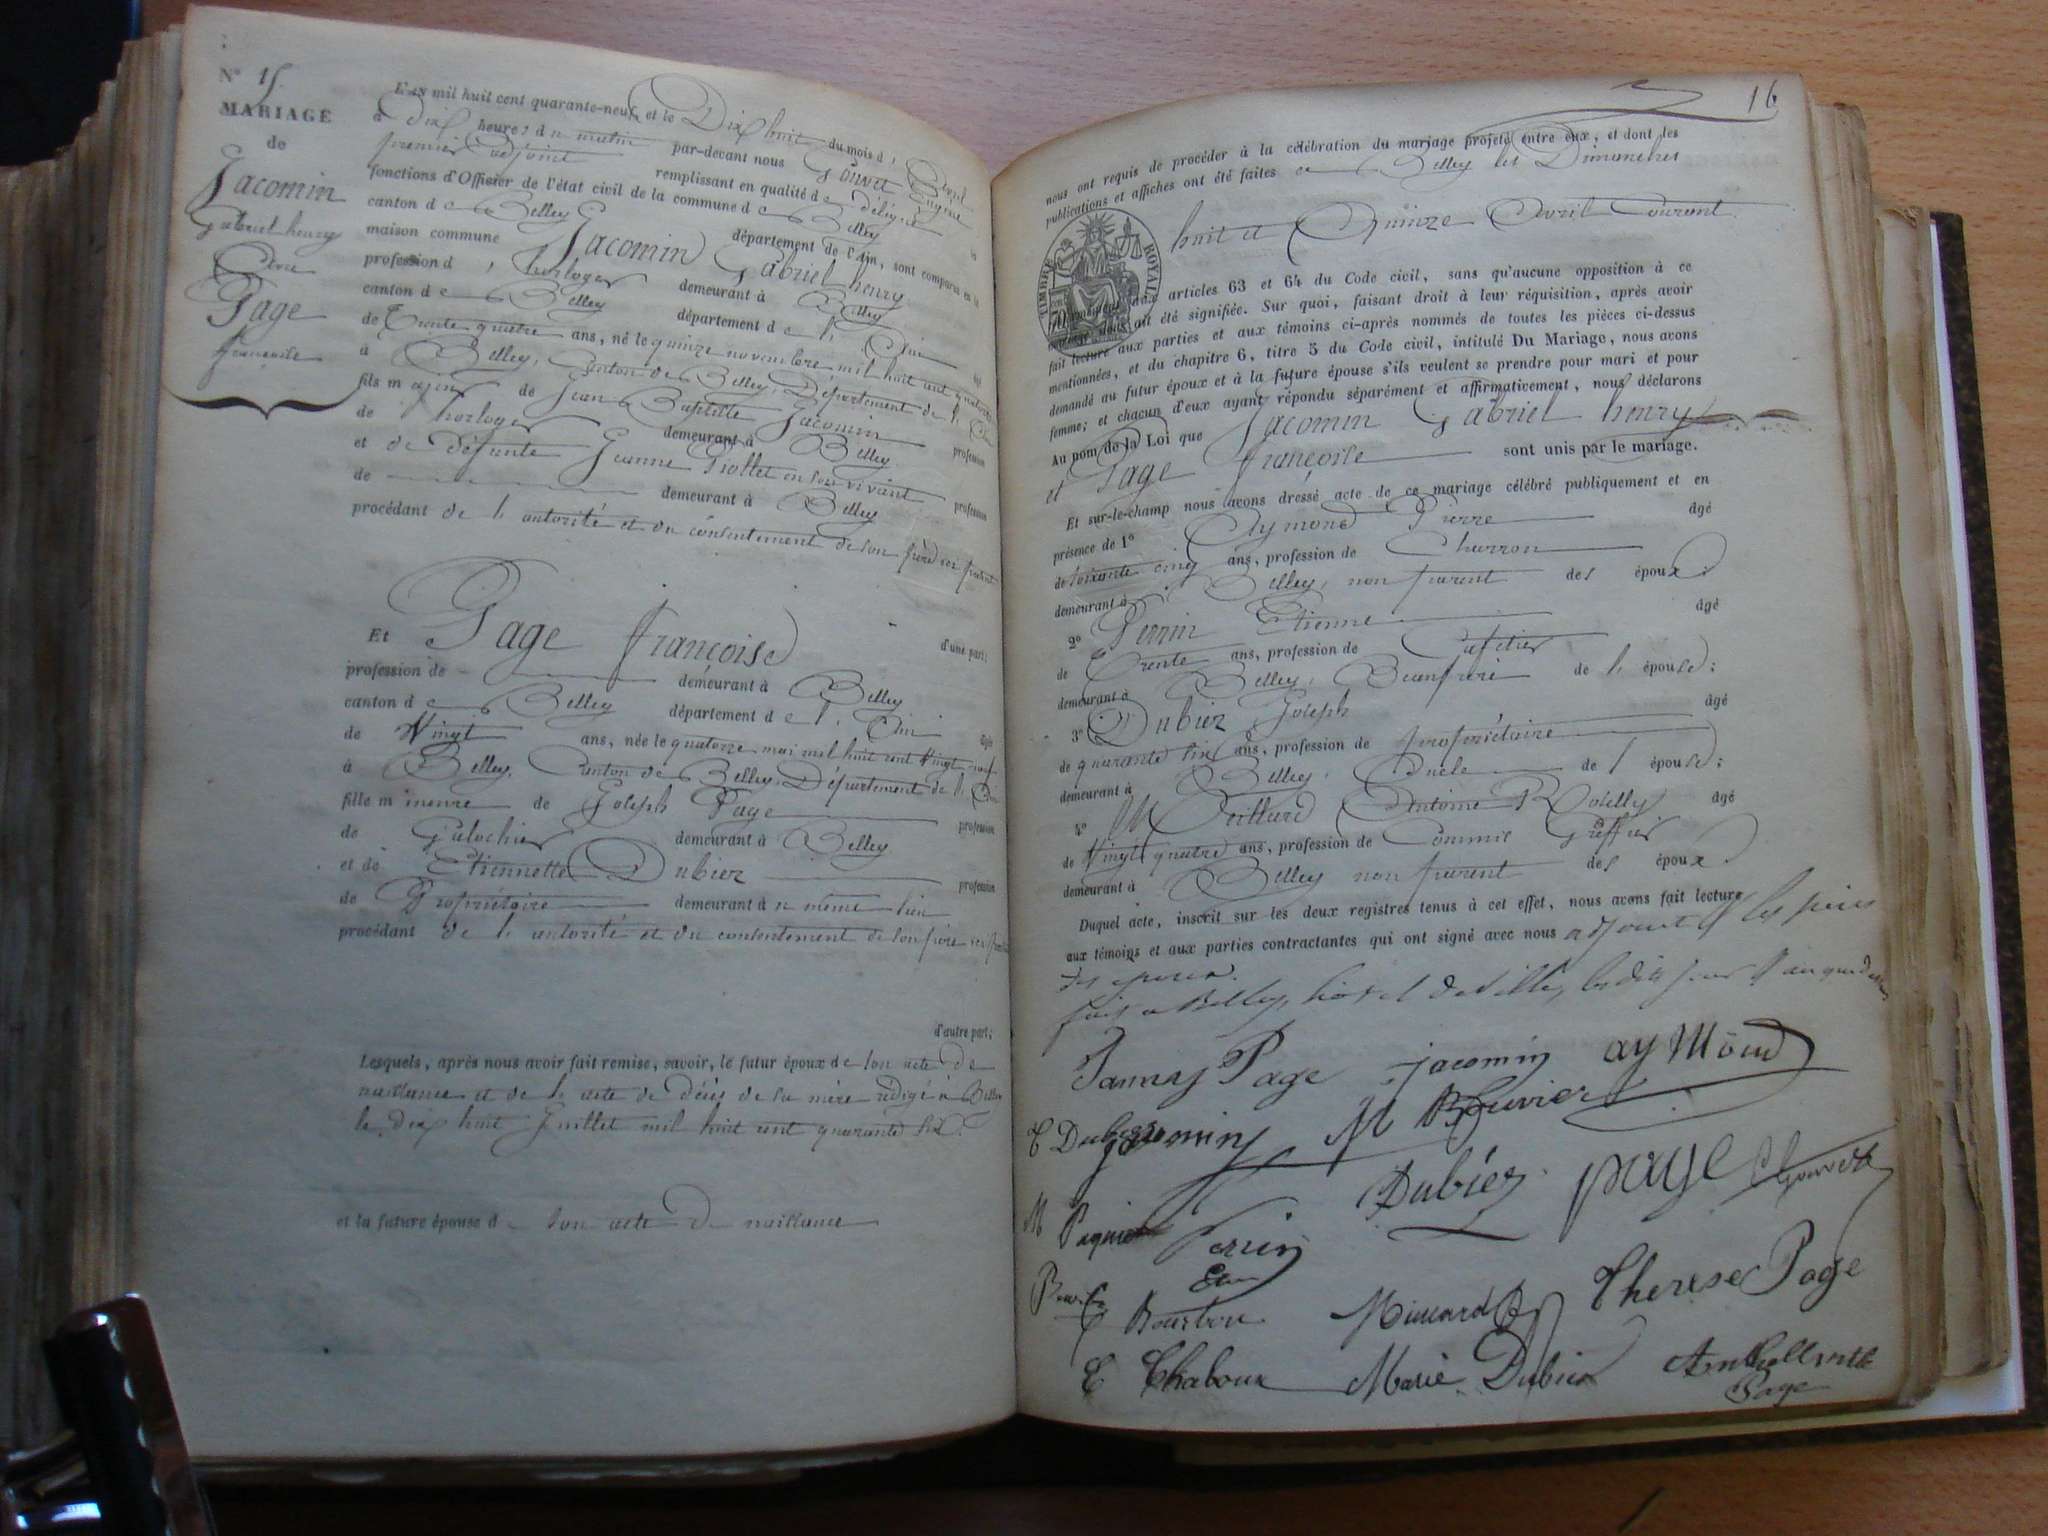 N° 15.
MARIAGE
de
Jacomin
Gabriel henry
Avec
Page
françoise
L'an mil huit cent quarante-neuf, et le Dix huit du mois d'Avril
à dix heures du matin par-devant nous Gouvet Eugène
premier adjoint remplissant en qualité de délégué les
fonctions d'Officier de l'état civil de la commune de Belley
canton de Belley département de l'Ain, sont comparus en la
maison commune Jacomin Gabriel henry
profession d'horloger demeurant à Belley
canton de Belley département de l'Ain âgé
de Trente quatre ans, né le quinze novembre mil huit cent quatorze
à Belley, Canton de Belley, Département de l'Ain
fils majeur de Jean Baptiste Jacomin profession
de horloger demeurant à Belley
et de défunte Jeanne Piollet en son vivant profession
de demeurant à Belley
procédant de l'autorité et du consentement de son père ici présent
d'une part;
Et Page françoise
profession de demeurant à Belley
canton de Belley département de l'Ain âgée
de Vingt ans, née le quatorze mai mil huit cent Vingt neuf
à Belley, Canton de Belley, Département de l'Ain
fille mineure de Joseph Page profession
de Galochier demeurant à Belley
et de Etiennette Dubiez profession
de Propriétaire demeurant au même lieu
procédant de l'autorité et du consentement de son père ici présent
d'autre part;
Lesquels, après nous avoir fait remise, savoir, le futur époux de son acte de
naissance et de l'acte de décès de sa mère rédigé à Belley
le dix huit Juillet mil huit cent quarante six.
et la future épouse de son acte de naissance
16
nous ont requis de procéder à la célébration du mariage projeté entre eux, et dont les
publications et affiches ont été faites à Belley les Dimanches
huit et Quinze Avril Courant
TIMBRE ROYAL
articles 63 et 64 du Code civil, sans qu'aucune opposition à ce
mariage nous ait été signifiée. Sur quoi, faisant droit à leur réquisition, après avoir
fait lecture aux parties et aux témoins ci-après nommés de toutes les pièces ci-dessus
mentionnées, et du chapitre 6, titre 5 du Code civil, intitulé Du Mariage, nous avons
demandé au futur époux et à la future épouse s'ils veulent se prendre pour mari et pour
femme; et chacun d'eux ayant répondu séparément et affirmativement, nous déclarons
Au nom de la Loi que Jacomin Gabriel henry
et Page françoise sont unis par le mariage.
Et sur-le-champ nous avons dressé acte de ce mariage célébré publiquement et en
présence de 1° Aymond Pierre âgé
de soixante cinq ans, profession de Charron
demeurant à Belley, non parent des époux;
2° Perrin Etienne âgé
de Trente ans, profession de Cafetier
demeurant à Belley, Beaufrère de l'épouse;
3° Dubiez Joseph âgé
de quarante six ans, profession de propriétaire
demeurant à Belley, Oncle de l'épouse;
4° Antoine âgé
de Vingt quatre ans, profession de Commis Greffier
demeurant à Belley non parent des époux
Duquel acte, inscrit sur les deux registres tenus à cet effet, nous avons fait lecture
aux témoins et aux parties contractantes qui ont signé avec nous adjoint & les pères
des époux.
fait à Belley, hôtel de Ville, les dits jour & an que dessus
Fanny Page jacomin aymond
E Dubiez jacomin M Bouvier
Dubiez page Gouvet
M Perrin
Etne Therese Page
Bourbon
E Chaboux Marie Dubiez
Page